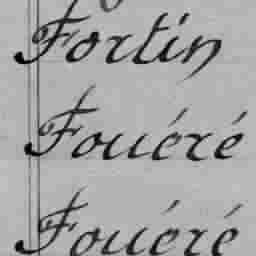 Fortin
Fouéré
Fouéré